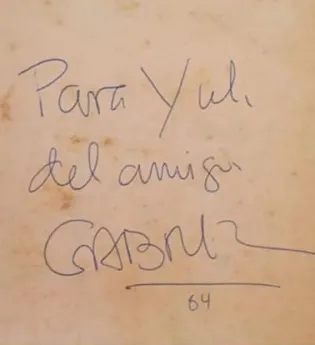 Para Yuli
del amigo
GABRIEL
64